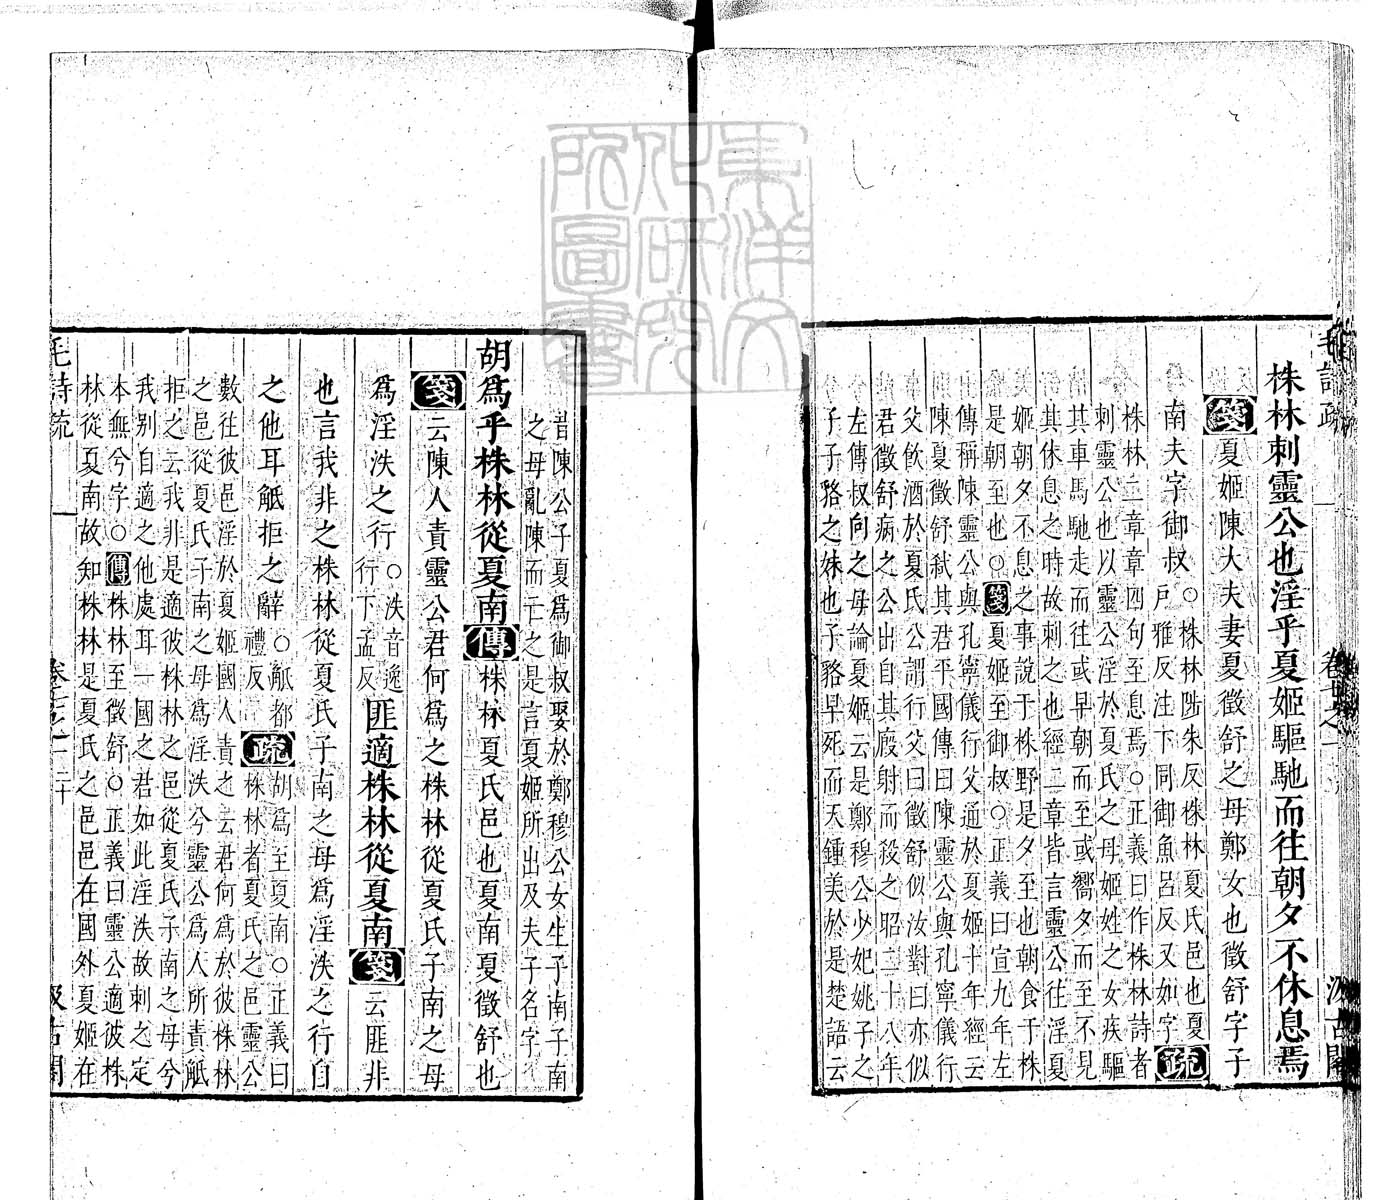 株林刺靈公也淫乎夏姬驅馳而往朝夕不休息焉
箋夏姬陳大夫妻夏徵舒之母鄭女也徵舒字子
南夫字御叔○株林陟朱反株林夏氏邑也夏
戶雅反注下同御魚呂反又如字疏
株林二章章四句至息焉○正義曰作株林詩者
刺靈公也以靈公淫於夏氏之母姬姓之女疾驅
其車馬馳走而往或早朝而至或嚮夕而至不見
其休息之時故刺之也經二章皆言靈公往淫夏
姬朝夕不息之事說于株野是夕至也朝食于株
是朝至也○箋夏姬至御叔○正義曰宣九年左
傳稱陳靈公與孔寧儀行父通於夏姬十年經云
陳夏徵舒弒其君平國傳曰陳靈公與孔寧儀行
父飲酒於夏氏公謂行父曰徵舒似汝對曰亦似
君徵舒病之公出自其廄射而殺之昭二十八年
左傳叔向之母論夏姬云是鄭穆公少妃姚子之
子子貉之妹也子貉早死而天鍾美於是楚語云
昔陳公子夏為御叔娶於鄭穆公女生子南子南
之母亂陳而亡之是言夏姬所出及夫子名字
胡爲乎株林從夏南傳株林夏氏邑也夏南夏徵舒也
箋云陳人責靈公君何爲之株林從夏氏子南之母
爲淫泆之行○泆音逸行下孟反匪適株林從夏南箋云匪非
也言我非之株林從夏氏子南之母爲淫泆之行自
之他耳觝拒之辭○觝都禮反疏胡爲至夏南○正義曰
株林者夏氏之邑靈公
數往彼邑淫於夏姬國人責之云君何爲於彼株林
之邑從夏氏子南之母爲淫泆兮靈公爲人所責觝
拒之云我非是適彼株林之邑從夏氏子南之母兮
我別自適之他處耳一國之君如此淫泆故刺之定
本無兮字○傳株林至徵舒○正義曰靈公適彼株
林從夏南故知株林是夏氏之邑邑在國外夏姬在
毛詩疏